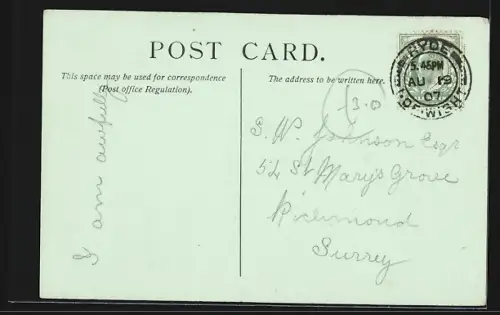 POST CARD.
This space may be used for correspondence
(Post office Regulation).
The address to be written here.
RYDE
5.45PM
AU 19
07
I. OF WIGHT
I am awfully
13.0
E. W. Johnson Esqr
52 St Mary's Grove
Richmond
Surrey